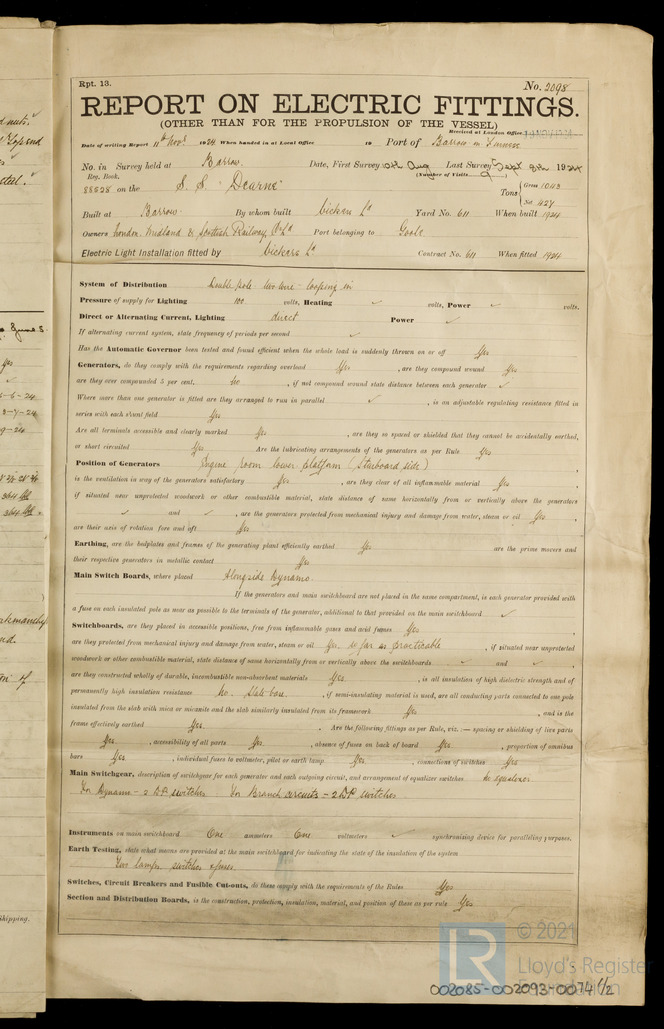 Rpt. 13.
No. 2098
REPORT ON ELECTRIC FITTINGS.
(OTHER THAN FOR THE PROPULSION OF THE VESSEL)
Received at London Office
Date of writing Report 11th Novr 1924 When handed in at Local Office 19 Port of Barrow in Furness
No. in Survey held at Barrow. Date, First Survey Aug Last Survey Sept 9th 1924
Reg. Book. (Number of Visits
88528 on the S. S. "Dearne" Tons { Gross 1043
Net 427
Built at Barrow By whom built Vickers Ld Yard No. 611 When built 1924
Owners London, Midland & Scottish Railway Co Ld Port belonging to Goole
Electric Light Installation fitted by Vickers Ld Contract No. 611 When fitted 1924
System of Distribution Double pole two wire - looping in
Pressure of supply for Lighting 100 volts, Heating ✓ volts, Power ✓ volts.
Direct or Alternating Current, Lighting direct Power ✓
If alternating current system, state frequency of periods per second ✓
Has the Automatic Governor been tested and found efficient when the whole load is suddenly thrown on or off Yes
Generators, do they comply with the requirements regarding overload Yes , are they compound wound Yes
are they over compounded 5 per cent. No , if not compound wound state distance between each generator ✓
Where more than one generator is fitted are they arranged to run in parallel ✓ , is an adjustable regulating resistance fitted in
series with each shunt field Yes
Are all terminals accessible and clearly marked Yes , are they so spaced or shielded that they cannot be accidentally earthed,
or short circuited Yes Are the lubricating arrangements of the generators as per Rule. Yes
Position of Generators Engine room lower platform (Starboard side)
is the ventilation in way of the generators satisfactory Yes , are they clear of all inflammable material Yes ,
if situated near unprotected woodwork or other combustible material, state distance of same horizontally from or vertically above the generators
✓ and ✓ , are the generators protected from mechanical injury and damage from water, steam or oil Yes ,
are their axis of rotation fore and aft Yes
Earthing, are the bedplates and frames of the generating plant efficiently earthed Yes are the prime movers and
their respective generators in metallic contact Yes
Main Switch Boards, where placed Alongside Dynamo.
If the generators and main switchboard are not placed in the same compartment, is each generator provided with
a fuse on each insulated pole as near as possible to the terminals of the generator, additional to that provided on the main switchboard ✓
Switchboards, are they placed in accessible positions, free from inflammable gases and acid fumes Yes ,
are they protected from mechanical injury and damage from water, steam or oil Yes as far as practicable , if situated near unprotected
woodwork or other combustible material, state distance of same horizontally from or vertically above the switchboards ✓ and ✓ ,
are they constructed wholly of durable, incombustible non-absorbent materials Yes , is all insulation of high dielectric strength and of
permanently high insulation resistance No. Slate base. , if semi-insulating material is used, are all conducting parts connected to one pole
insulated from the slab with mica or micanite and the slab similarly insulated from its framework Yes , and is the
frame effectively earthed Yes . Are the following fittings as per Rule, viz.:— spacing or shielding of live parts
Yes , accessibility of all parts Yes , absence of fuses on back of board Yes , proportion of omnibus
bars Yes , individual fuses to voltmeter, pilot or earth lamp Yes , connections of switches Yes
Main Switchgear, description of switchgear for each generator and each outgoing circuit, and arrangement of equalizer switches No equalizer
For Dynamo - 2 D.P switches For Branch circuits - 2 D.P switches
Instruments on main switchboard. One ammeters One voltmeters ✓ synchronising device for paralleling purposes.
Earth Testing, state what means are provided at the main switchboard for indicating the state of the insulation of the system
Two lamps, switches & fuses
Switches, Circuit Breakers and Fusible Cut-outs, do these comply with the requirements of the Rules Yes
Section and Distribution Boards, is the construction, protection, insulation, material, and position of these as per rule Yes
© 2021
LR
Lloyd's Register
Foundation
002085-002093-0074 1/2